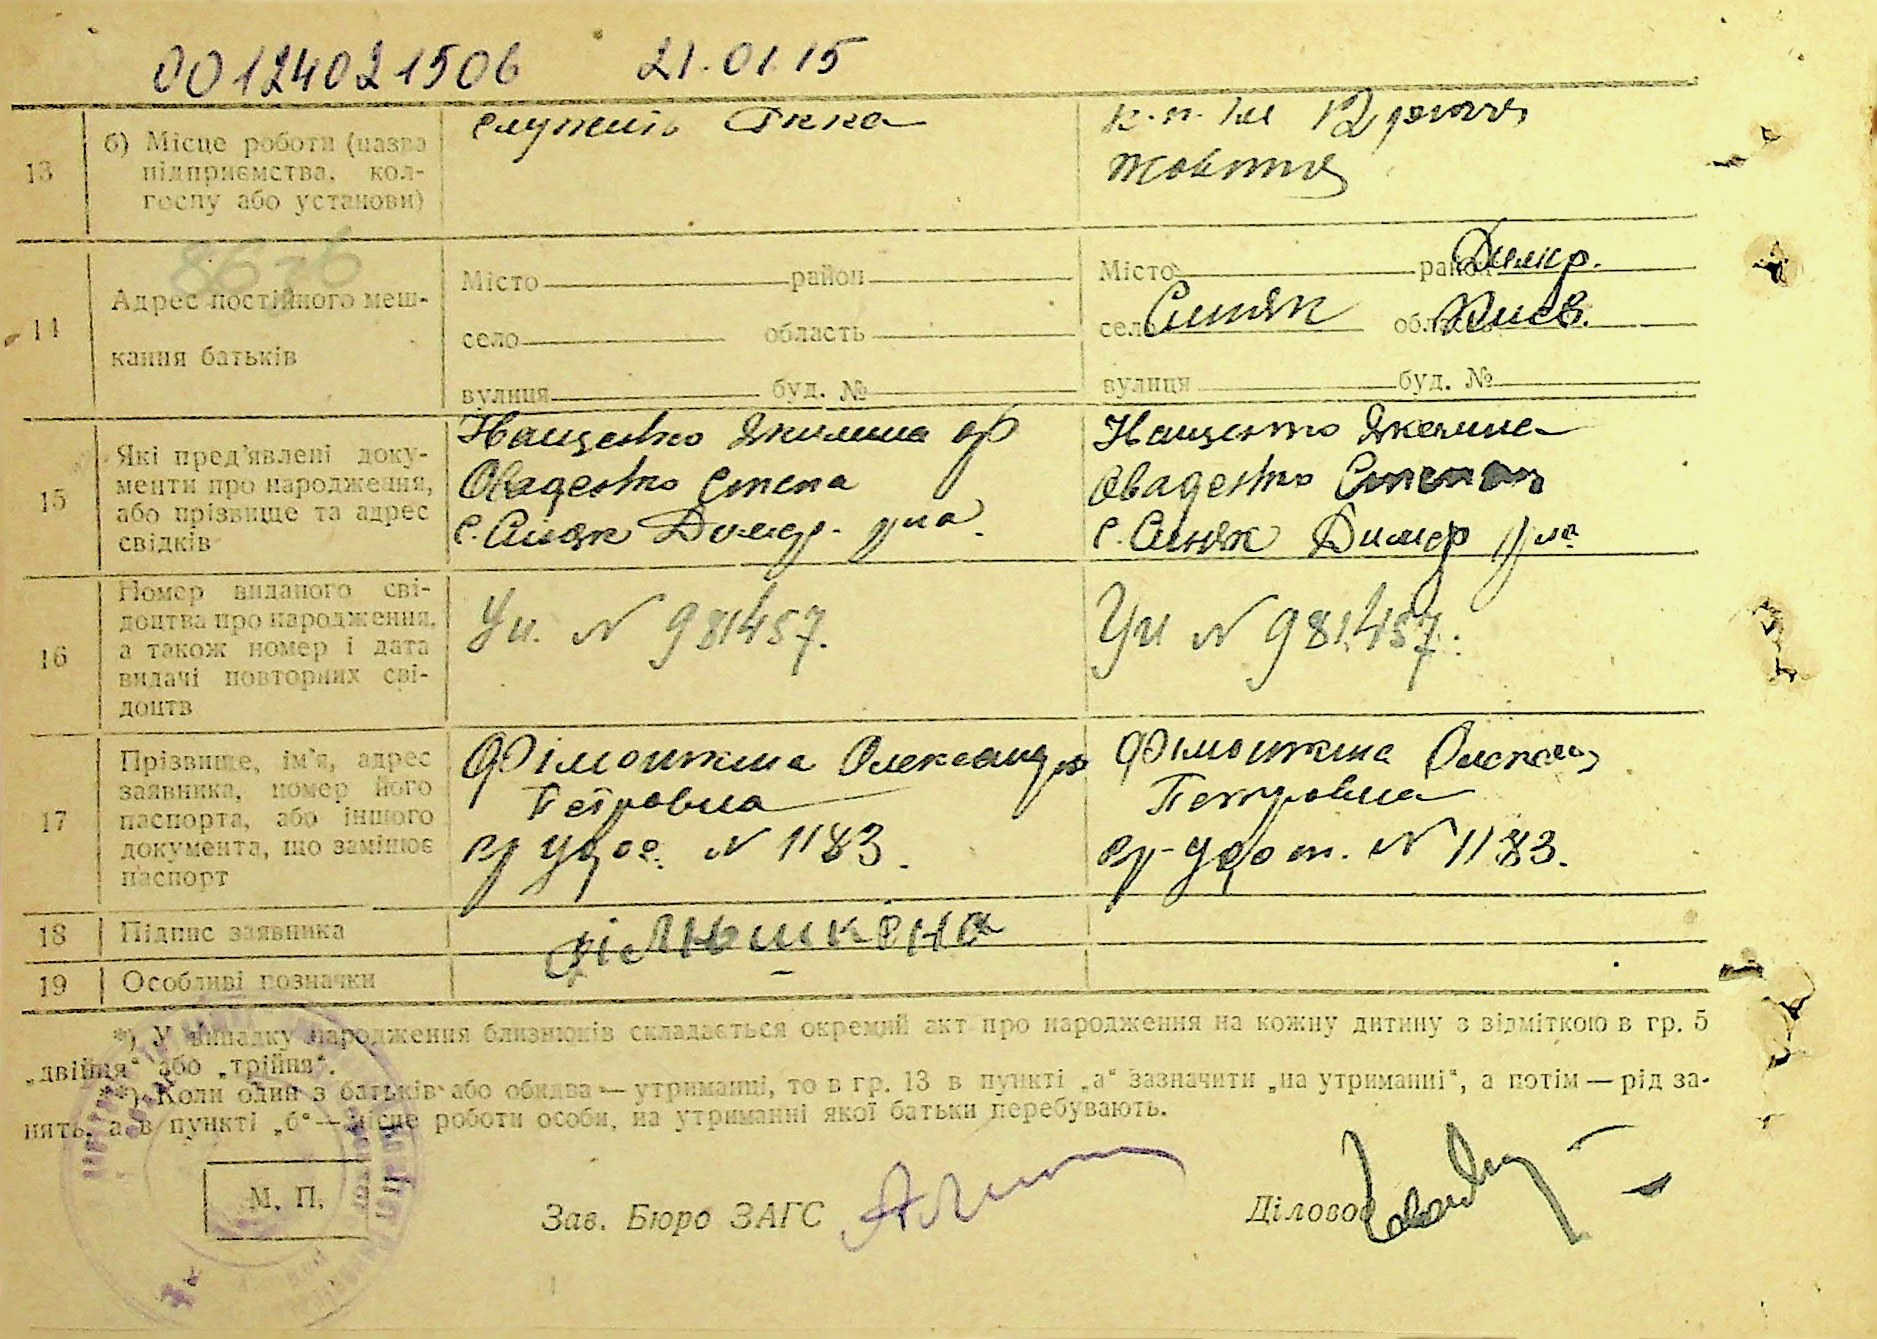 00124021506 21.01.15
13 б) Місце роботи (назва
підприємства, кол-
госпу або установи)
к.п. Ім 12 річчя
Жовтня
8636
14 Адрес постійного меш-
кання батьків
Місто район
село область
вулиця буд. №
Місто район Димер.
село Синяк область Київ.
вулиця буд. №
15 Які пред'явлені доку-
менти про народження,
або прізвище та адрес
свідків
Нащенко Якилина
Оваденко Степа
с. Синяк Димер. р-на.
Нащенко Якелина
Оваденко Степан
с. Синяк Димер р-на
16 Номер виданого сві-
доцтва про народження,
а також номер і дата
видачі повторних сві-
доцтв
Уи. N 981457.
Уи N 981457.
17 Прізвище, ім'я, адрес
заявника, номер його
паспорта, або іншого
документа, що заміняє
паспорт
Фімошкина Олександра
Петровна
N 1183.
Фімошкина
Петровна
N 1183.
18 Підпис заявника
19 Особливі позначки
*) У випадку народження близнюків складається окремий акт про народження на кожну дитину з відміткою в гр. 5
„двійня“ або „трійня“.
**) Коли один з батьків або обидва — утриманці, то в гр. 13 в пункті „а“ зазначити „на утриманні“, а потім — рід за-
нять, а в пункті „б“ — місце роботи особи, на утриманні якої батьки перебувають.
М. П.
Зав. Бюро ЗАГС
Діловод